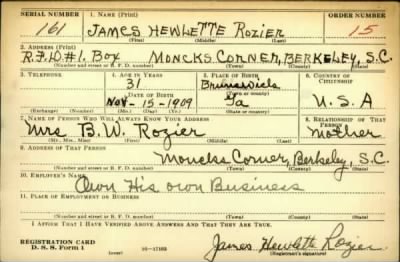 SERIAL NUMBER 1. NAME (Print) ORDER NUMBER
161 JAMES HEWLETTE ROZIER 15
(First) (Middle) (Last)
2. ADDRESS (Print)
R.F.D#1. Box MONCKS CORNER, BERKELEY, S.C.
(Number and street or R. F. D. number) (Town) (County) (State)
3. TELEPHONE 4. AGE IN YEARS 5. PLACE OF BIRTH 6. COUNTRY OF CITIZENSHIP
31
DATE OF BIRTH (Town or county)
Nov-15-1909 Ga U.S.A
(Exchange) (Number) (Mo.) (Day) (Yr.) (State or country)
7. NAME OF PERSON WHO WILL ALWAYS KNOW YOUR ADDRESS 8. RELATIONSHIP OF THAT PERSON
Mrs B.W. Rozier Mother
(Mr., Mrs., Miss) (First) (Middle) (Last)
9. ADDRESS OF THAT PERSON
Moncks Corner, Berkeley, S.C.
(Number and street or R. F. D. number) (Town) (County) (State)
10. EMPLOYER'S NAME
Own His own Business
11. PLACE OF EMPLOYMENT OR BUSINESS
(Number and street or R. F. D. number) (Town) (County) (State)
I AFFIRM THAT I HAVE VERIFIED ABOVE ANSWERS AND THAT THEY ARE TRUE.
REGISTRATION CARD
D. S. S. Form 1 (over) James Hewlette Rozier
(Registrant's signature)